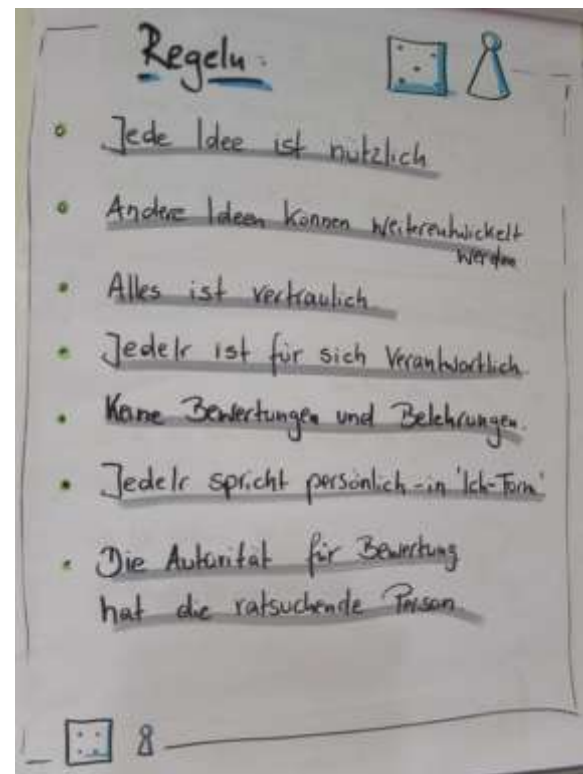 Regeln:
Jede Idee ist nützlich
Andere Ideen können weiterentwickelt
werden
Alles ist vertraulich
Jede/r ist für sich verantwortlich.
Keine Bewertungen und Belehrungen.
Jede/r spricht persönlich - in 'Ich-Form'
Die Autorität für Bewertung
hat die ratsuchende Person.